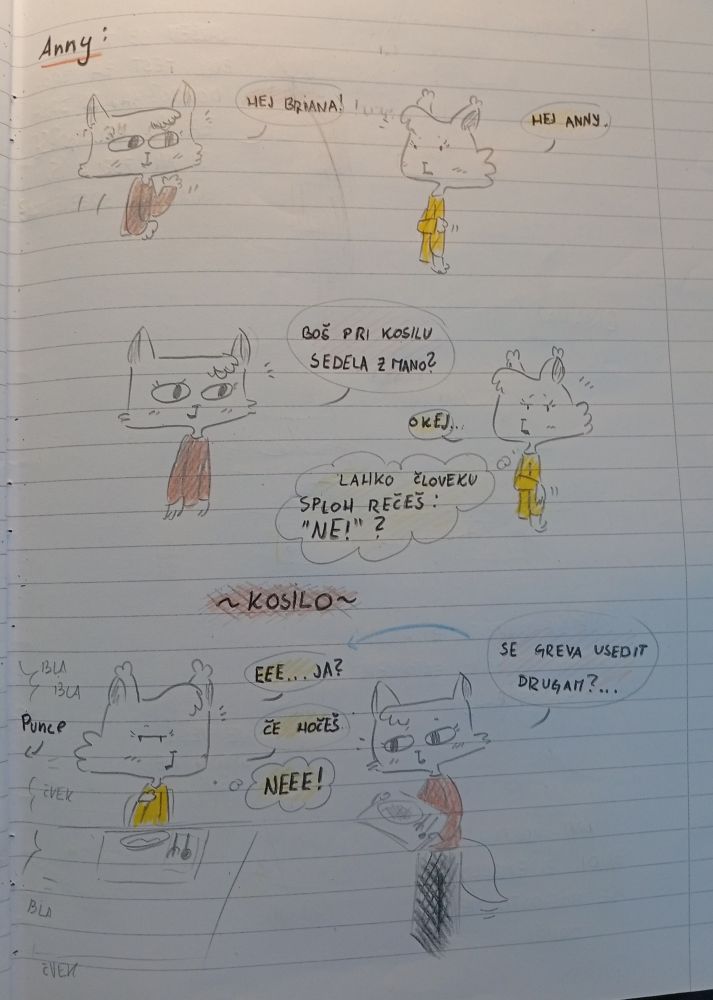 Anny:
HEJ BRIANA!
HEJ ANNY.
BOŠ PRI KOSILU
SEDELA Z MANO?
OKEJ...
LAHKO ČLOVEKU
SPLOH REČEŠ:
"NE!"?
~KOSILO~
SE GREVA USEDIT
DRUGAM?...
BLA
BLA
EEE...JA?
Punce
ČE HOČEŠ
NEEE!
ČVEK
BLA
ČVEK